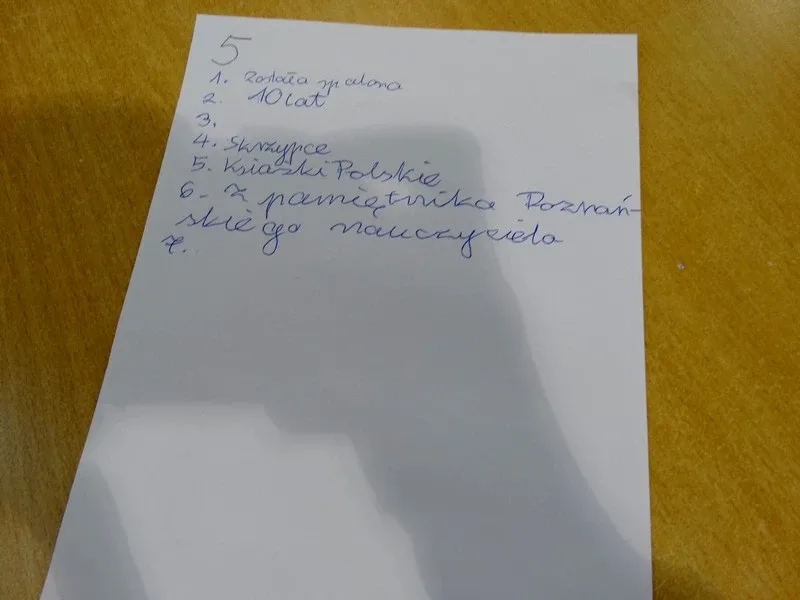 5
1. Została spalona
2. 10 lat
3.
4. Skrzypce
5. Ksiażki Polskie
6. Z pamiętnika Poznań-
skiego nauczyciela
7.